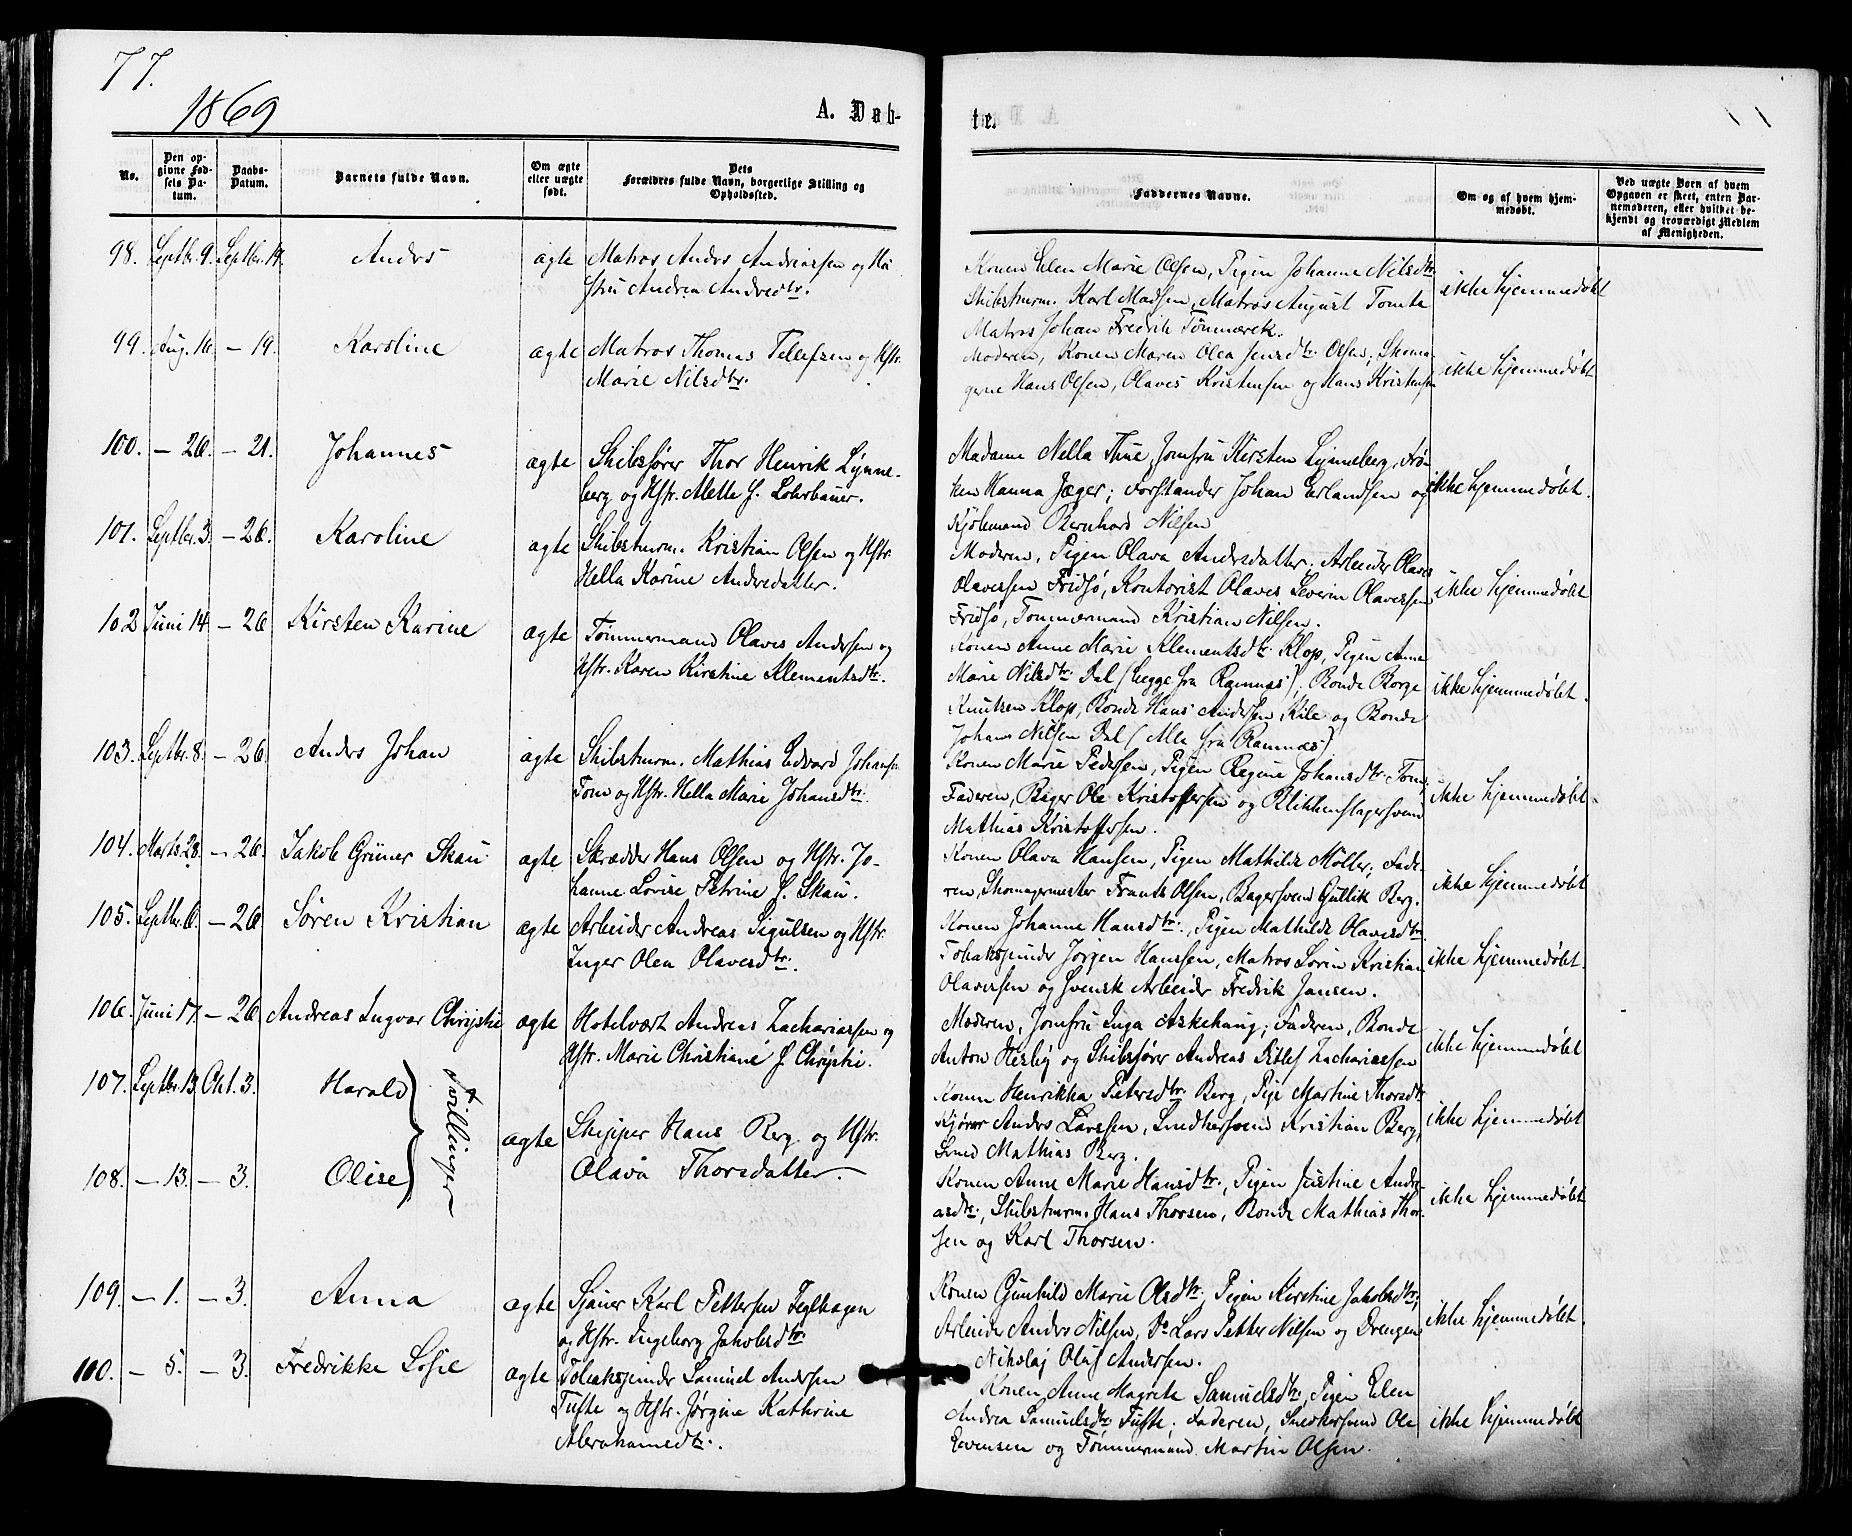 77.
1869
A. Døb-
te.
No.
Den op-
givne Fød-
sels Da-
tum.
Daabs-
Datum.
Barnets fulde Navn.
Om ægte
eller uægte
født.
Dets
Forældres fulde Navn, borgerlige Stilling og
Opholdssted.
Faddernes Navne.
Om og af hvem hjem-
medøbt.
Ved uægte Børn af hvem
Opgaven er skeet, enten Bar-
nemoderen, eller hvilket be-
kjendt og troværdigt Medlem
af Menigheden.
98. Septbr. 9. Septbr. 19. Andrs ægte Matros Andrs Andreassen og Hu
stru Andrea Andredtr.
Konen Elen Marie Olsen, Pigen Johanne Nilsdtr.
Skibstmrm. Karl Madsen, Matros August Tomte
Matros Johan Fredrik Tönmerek.
ikke hjemmedøbt
99. Aug. 16. — 19. Karoline ægte Matros Thomas Tellefsen og Hstr.
Marie Nilsdtr.
Moderen, Konen Maren Olea Jensdtr. Olsen; Skoma-
gerne Hans Olsen, Olaves Kristensen og Hans Kristensen
ikke hjemmedøbt
100. — 26. — 21. Johannes ægte Skibsfører Thor Henrik Lynne-
berg og Hstr. Mette f. Lohrbauer.
Madame Nella Thue, Jomfru Kirsten Lynneberg, Frø-
ken Hanna Jæger; Forstander Johan Erlandsen og
Kjöbmand Bernhard Nilsen
ikke hjemmedøbt.
101. Septbr. 3. — 26. Karoline ægte Skibstmrm. Kristian Olsen og Hstr.
Hella Karine Andredatter.
Moderen, Pigen Olava Andrsdatter; Arbeider Olaves
Olavessen Fridsö, Kontorist Olaves Severin Olavessen
Fridsö, Tömmermand Kristian Nilsen.
ikke hjemmedøbt
102 Juni 14. — 26. Kirsten Karine ægte Tömmermand Olaves Andersen og
Hstr. Karen Kirstine Klementsdtr.
Konen Anne Marie Klementsdtr. Klop, Pigen Anne
Marie Nilsdtr. Dal (begge fra Ramnæs), Bonde Borge
Knutsen Klop, Bonde Hans Andersen Kile og Bonde
Johans Nilsen Dal (Alle fra Ramnæs)
ikke hjemmedøbt.
103. Septbr. 8. — 26. Andrs Johan ægte Skibstmrm. Mathias Edvard Johansen
Tom og Hstr. Hella Marie Johansdtr.
Konen Marie Pedersen, Pigen Regine Johansdtr. Tom,
Faderen, Bager Ole Kristoffersen og Blikkenslagersvend
Mathias Kristoffersen.
ikke hjemmedøbt.
104. Marts 28. — 26. Jakob Grüner Skau ægte Skrædder Hans Olsen og Hstr. Jo-
hanne Lovise Petrine f. Skau.
Konen Olava Hansen, Pigen Mathilde Möller; Fade-
ren, Skomagermester Frants Olsen, Bagersvend Gullik Berg.
ikke hjemmedøbt
105. Septbr. 6. — 26. Sören Kristian ægte Arbeider Andreas Sigulsen og Hstr.
Inger Olea Olavesdtr.
Konen Johanne Hansdtr., Pigen Mathilde Olavesdtr.
Tobaksspinder Jörgen Hanssen, Matros Sörin Kristian
Olavessen og svensk Arbeider Fredrik Jansen.
ikke hjemmedøbt.
106. Juni 17. — 26. Andreas Ingvar Chrystie ægte Hotelvært Andreas Zachariassen og
Hstr. Marie Christiane f. Chrystie.
Moderen, Jomfru Inga Askehaug; Faderen, Bonde
Anton Hesby og Skibsfører Andreas Ditlef Zachariassen
ikke hjemmedøbt
107. Septbr. 13. Okt. 3. Harald
Tvillinger
ægte Skipper Hans Berg og Hstr.
Olava Thorsdatter.
Konen Henrikka Petersdtr. Berg, Pige Martine Thorsdtr.
Kjörer Andrs Larssen, Snedkersvend Kristian Berg,
Smed Mathias Berg.
ikke hjemmedøbt
108. — 13. — 3. Olise
Konen Anne Marie Hansdtr., Pigen Justine Andre-
asdtr., Skibstmrm. Hans Thorsen, Bonde Mathias Thor-
sen og Karl Thorsen.
ikke hjemmedøbt
109. — 1. — 3. Anna ægte Sjauer Karl Pettersen Teglhagen
og Hstr. Ingeborg Jakobsdtr.
Konen Gunhild Marie Olsdtr., Pigen Kirstine Jakobsdtr.,
Arbeider Andrs Nilsen, Do Lars Petter Nilsen og Drengen
Nikolaj Oluf Andersen.
ikke hjemmedøbt.
100. — 5. — 3. Fredrikke Sofie ægte Tobaksspinder Samuel Andersen
Tufte og Hstr. Jørgine Kathrine
Abrahamsdtr.
Konen Anne Magrete Samuelsdtr., Pigen Elen
Andrea Samuelsdtr. Tufte; Faderen, Snedkersvend Ole
Evensen og Tömmermand Martin Olsen.
ikke hjemmedøbt